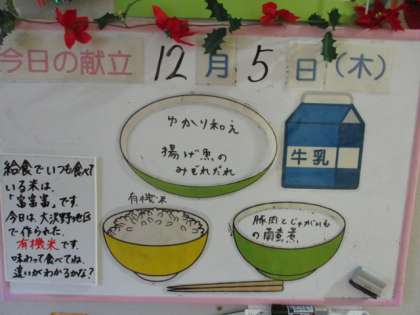 今日の献立 12月5日(木)
ゆかり和え
揚げ魚の
みぞれだれ
牛乳
有機米
豚肉とじゃがいも
の南蛮煮
給食でいつも食べて
いる米は、
「富富富」です。
今日は、大沢野地区
で作られた、
有機米です。
味わって食べてね。
違いがわかるかな?